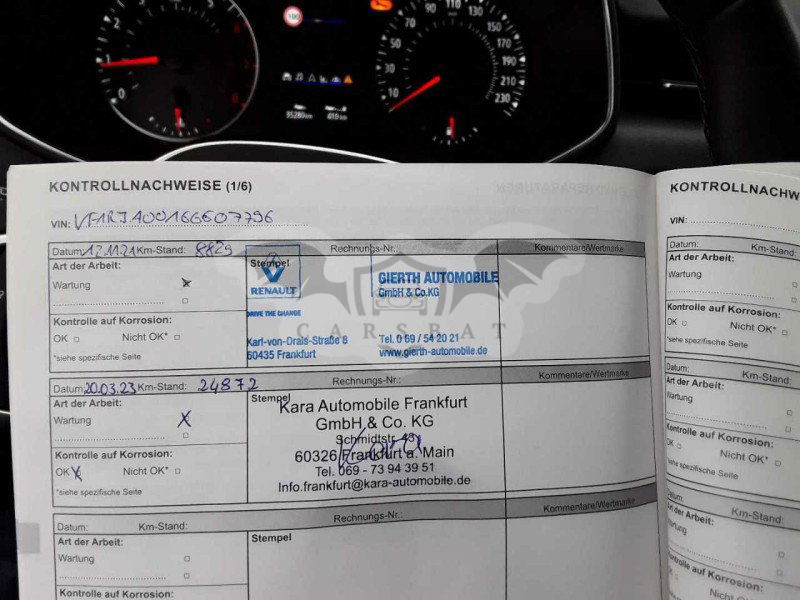 100
110
90
130
70
150
50
170
30
190
10
210
230
1
0
35280 km
KONTROLLNACHWEISE (1/6)
VIN: VF1RJA00166607796
Datum: 12.11.21 Km-Stand: 8829
Rechnungs-Nr.:
Kommentare/Wertmarke
Art der Arbeit:
Wartung
Kontrolle auf Korrosion:
OK Nicht OK*
*siehe spezifische Seite
Stempel
RENAULT
DRIVE THE CHANGE
GIERTH AUTOMOBILE
GmbH & Co.KG
Karl-von-Drais-Straße 8
60435 Frankfurt
Tel. 0 69 / 54 20 21
www.gierth-automobile.de
CARSBAT
Datum: 20.03.23 Km-Stand: 24872
Rechnungs-Nr.:
Kommentare/Wertmarke
Art der Arbeit:
Wartung X
Kontrolle auf Korrosion:
OK X Nicht OK*
*siehe spezifische Seite
Stempel
Kara Automobile Frankfurt
GmbH & Co. KG
Schmidtstr. 48
60326 Frankfurt a. Main
Tel. 069 - 73 94 39 51
Info.frankfurt@kara-automobile.de
Datum: Km-Stand:
Rechnungs-Nr.:
Kommentare/Wertmarke
Art der Arbeit:
Wartung
Kontrolle auf Korrosion:
Stempel
KONTROLLNACHW
VIN:
Datum: Km-Stand:
Art der Arbeit:
Wartung
Kontrolle auf Korrosion:
OK Nicht OK*
*siehe spezifische Seite
Datum: Km-Stand:
Art der Arbeit:
Wartung
Kontrolle auf Korrosion:
OK Nicht OK*
*siehe spezifische Seite
Datum: Km-Stand:
Art der Arbeit:
Wartung
Kontrolle auf Korrosion:
OK Nicht OK*